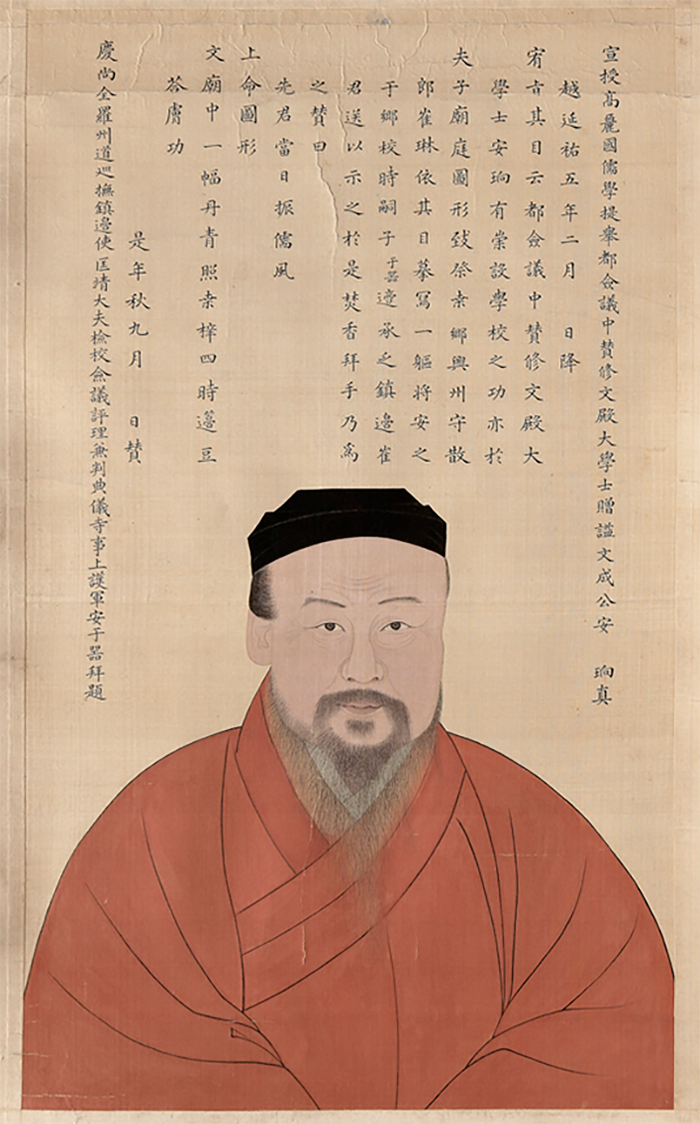 宣授高麗國儒學提舉都僉議中贊修文殿大學士贈謚文成公安 珦真
越延祐五年二月 日降
宥旨其目云都僉議中贊修文殿大
學士安珦有崇設學校之功亦於
夫子廟庭圖形致祭桒鄉興州守散
郎崔琳依其目摹寫一軀將安之
于鄉校時嗣子于器適承乏鎮邊崔
君送以示之於是焚香拜手乃爲
之贊曰
先君當日振儒風
上命圖形
文廟中一幅丹青照桒梓四時籩豆
荅膚功
是年秋九月 日贊
慶尚全羅州道廵撫鎮邊使匡靖大夫檢校僉議評理兼判典儀寺事上護軍安于器拜題